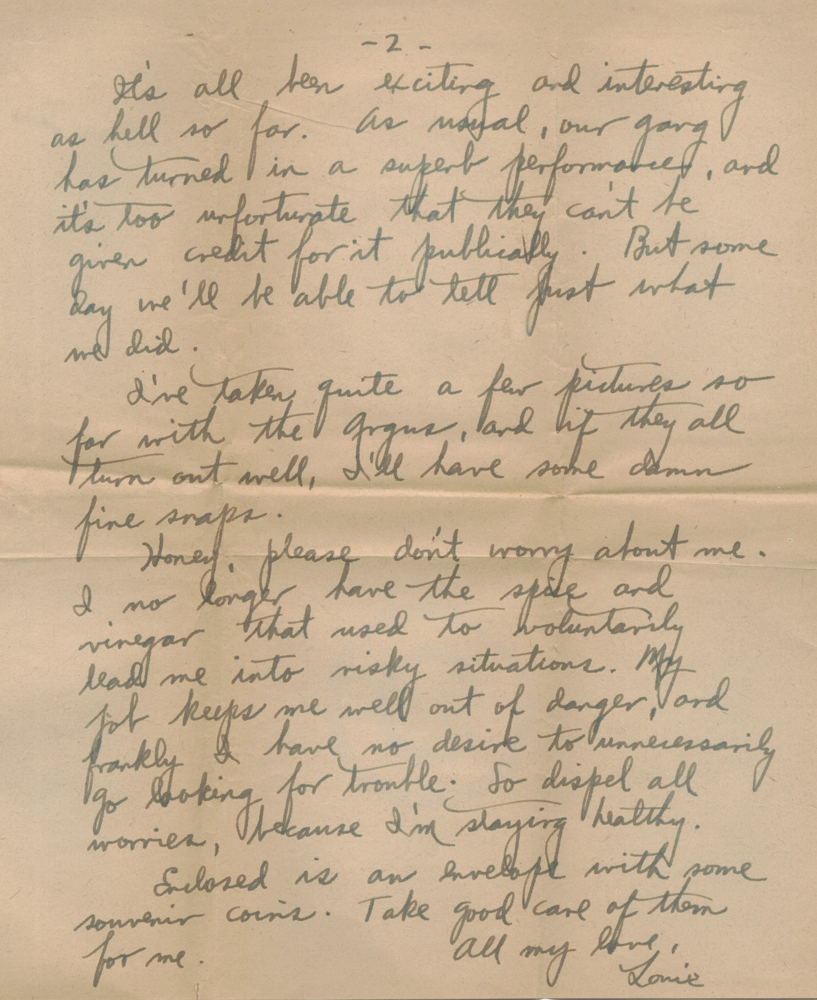 -2-
It's all been exciting and interesting
as hell so far. As usual, our gang
has turned in a superb performance, and
it's too unfortunate that they can't be
given credit for it publically. But some
day we'll be able to tell just what
we did.
I've taken quite a few pictures so
far with the Argus, and if they all
turn out well, I'll have some damn
fine snaps.
Honey, please don't worry about me.
I no longer have the spice and
vinegar that used to voluntarily
lead me into risky situations. My
job keeps me well out of danger, and
frankly I have no desire to unnecessarily
go looking for trouble. So dispel all
worries, because I'm staying healthy.
Enclosed is an envelope with some
souvenir coins. Take good care of them
for me. All my love,
Louie